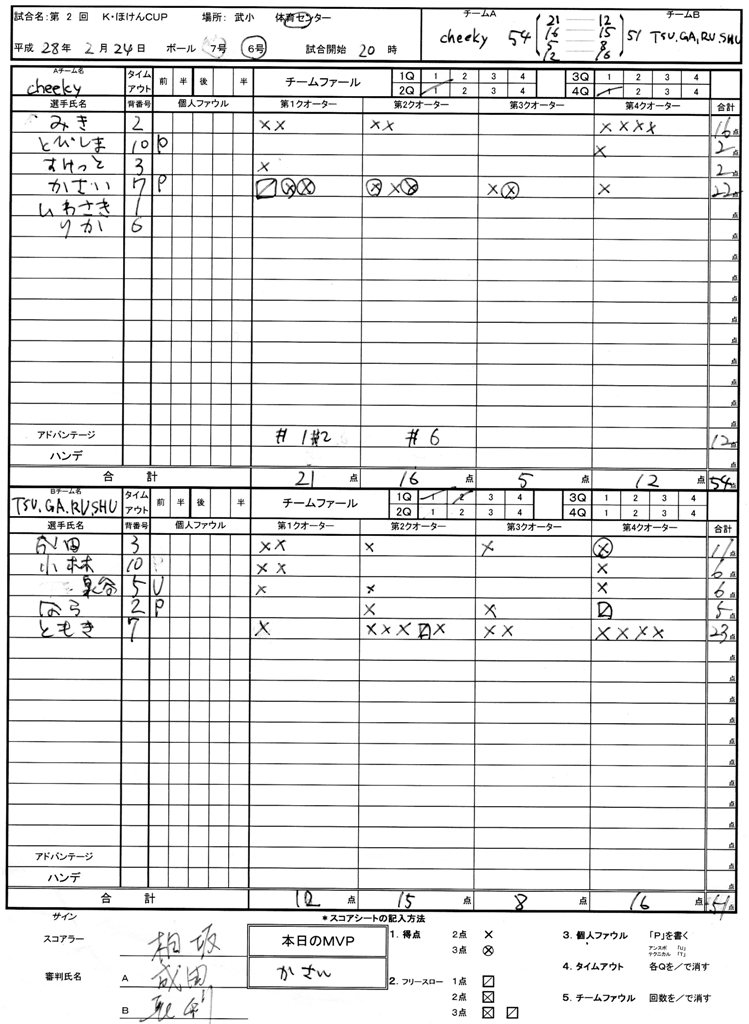 試合名:第 2 回 K・ほけんCUP 場所: 武小 体育センター
平成 28年 2月 24日 ボール 7号 6号 試合開始 20 時
チームA チームB
cheeky 54 51 TSU.GA.RU.SHU
21 12
16 15
5 8
12 16
Aチーム名 タイムアウト 前 半 後 半 チームファール 1Q 1 2 3 4 3Q 1 2 3 4
cheeky 2Q 1 2 3 4 4Q 1 2 3 4
選手氏名 背番号 個人ファウル 第1クオーター 第2クオーター 第3クオーター 第4クオーター 合計
みき 2 ×× ×× ×××× 16点
とびしま 10 P × 2点
すけっと 3 × 2点
かさい 7 P 22点
いわさき 1 点
りか 6 点
アドバンテージ #1#2 #6 12点
ハンデ 点
合 計 21 点 16 点 5 点 12 点 54点
Bチーム名 タイムアウト 前 半 後 半 チームファール 1Q 1 2 3 4 3Q 1 2 3 4
TSU.GA.RU.SHU 2Q 1 2 3 4 4Q 1 2 3 4
選手氏名 背番号 個人ファウル 第1クオーター 第2クオーター 第3クオーター 第4クオーター 合計
3 ×× × × 11点
小林 10 ×× × 6点
泉谷 5 U × × × 6点
なら 2 P × × 5点
ともき 7 × ×××× ×× ×××× 23点
アドバンテージ 点
ハンデ 点
合 計 12 点 15 点 8 点 16 点 51点
サイン
スコアラー 相坂
審判氏名 A 成田
B
本日のMVP
かさい
*スコアシートの記入方法
1. 得点 2点 ×
3点 ⊗
2. フリースロー 1点
2点
3点
3. 個人ファウル 「P」を書く
アンスポ 「U」
テクニカル 「T」
4. タイムアウト 各Qを/で消す
5. チームファウル 回数を/で消す